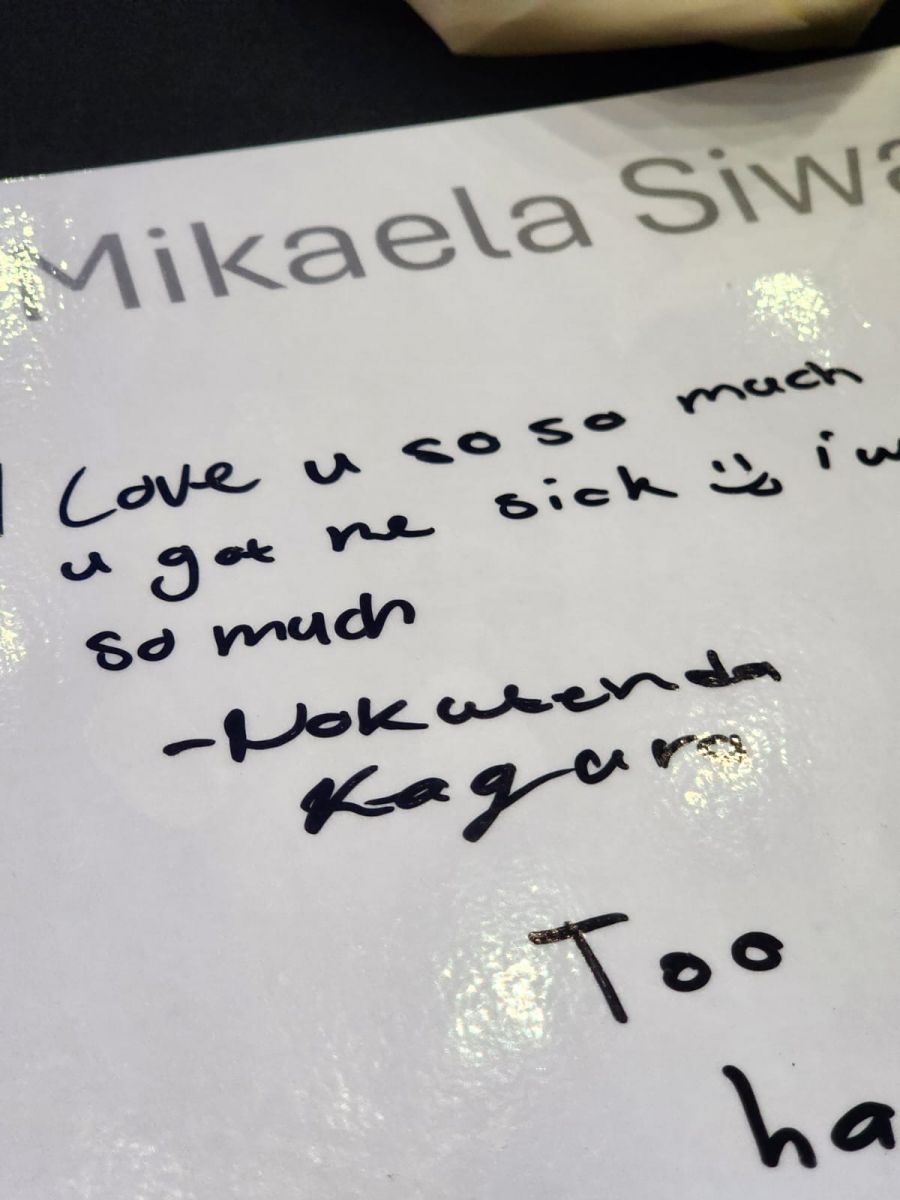 Mikaela Siwa
I Love u so so much
u got me sick i w
so much
-Nokutenda
Kagura
Too
ha